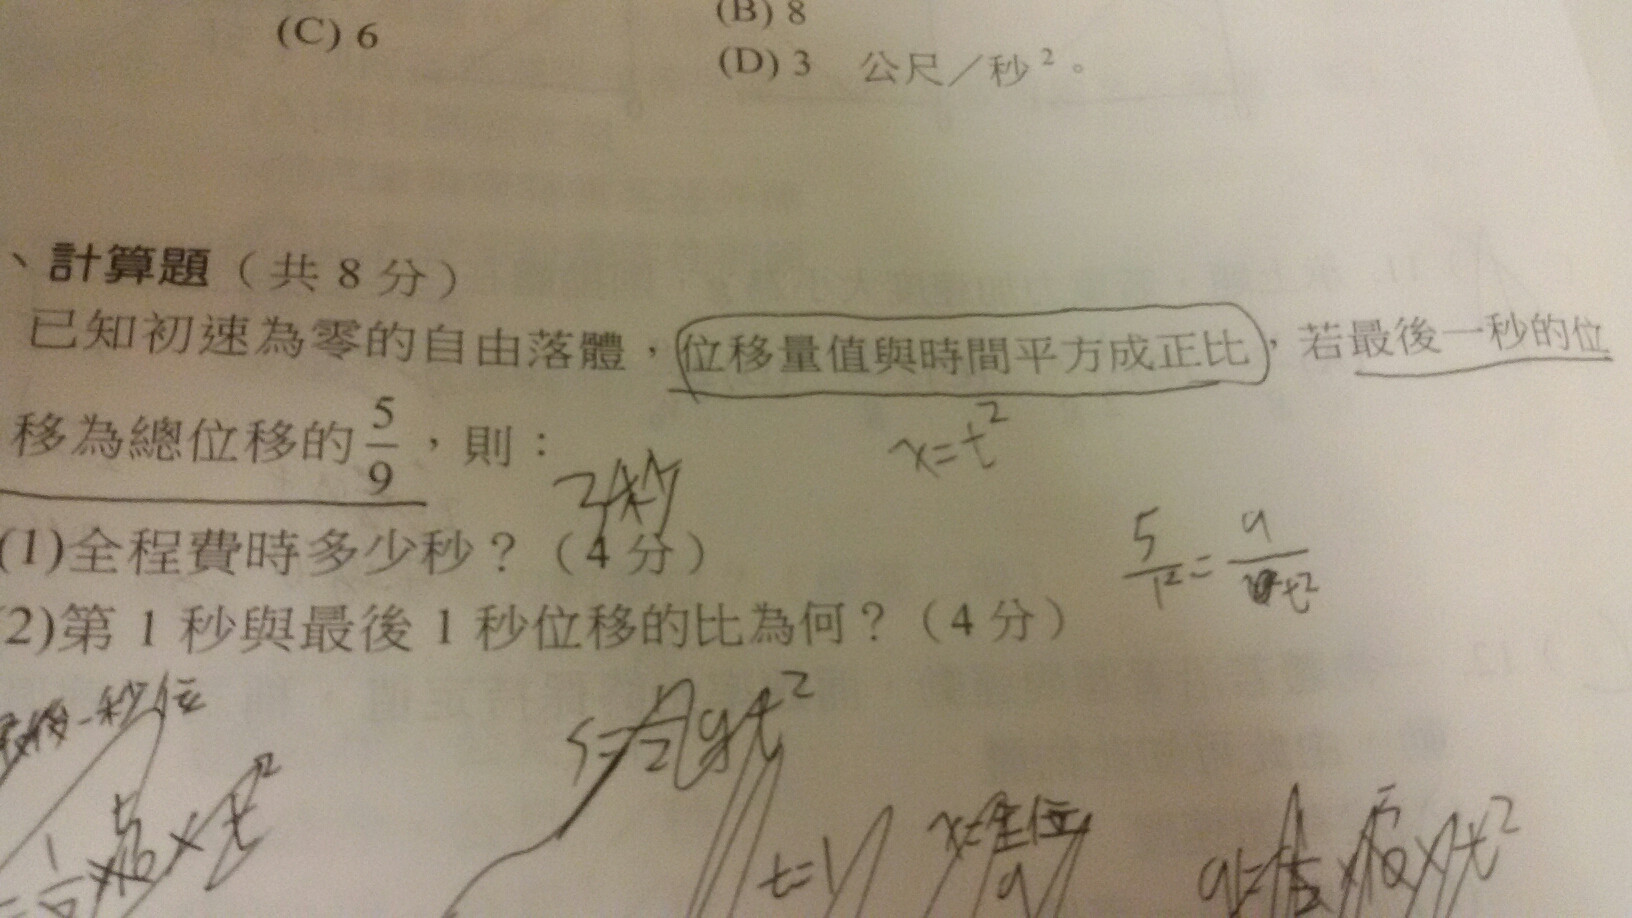 (B) 8
(C) 6
(D) 3 公尺／秒²。
、計算題（共 8 分）
已知初速為零的自由落體，位移量值與時間平方成正比，若最後一秒的位
移為總位移的 5/9 ，則：
x=t²
3秒
(1)全程費時多少秒？（4 分）
5/1² = 9/t²
(2)第 1 秒與最後 1 秒位移的比為何？（4 分）
最後一秒位
S=1/2gt²
t=1